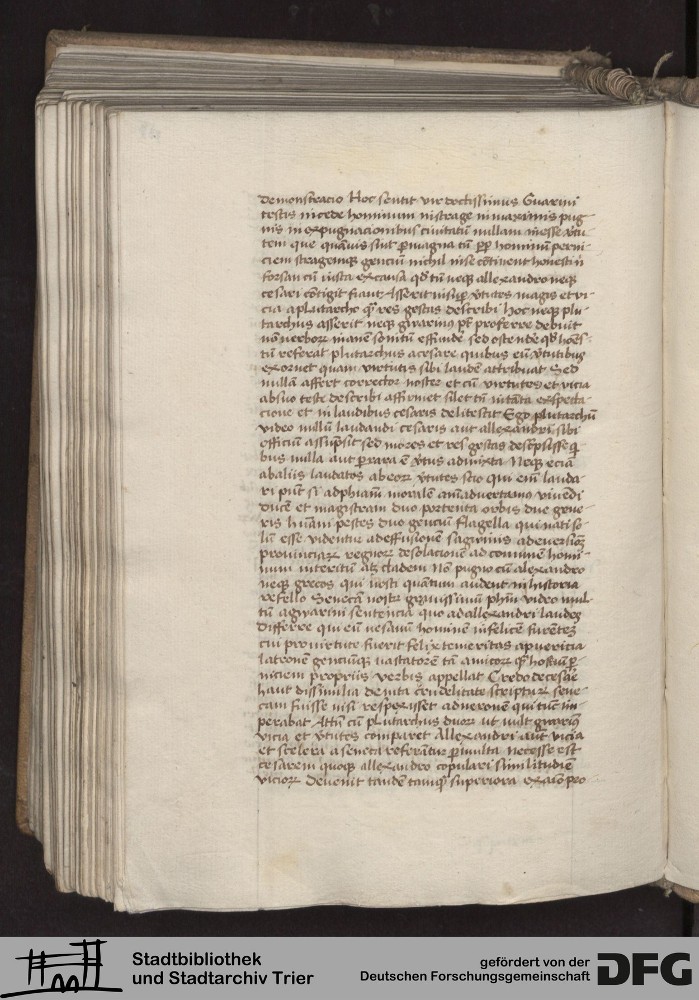 demonstracio Hoc sentit vir doctissimus Guarini
testis in cede hominum in strage in maximis pug-
nis in expugnacionibus civitatũ nullam inesse v̾tu
tem que quãuis sint p̱magna tñ pp̱ hominũ perni-
ciem stragemqꝫ genciũ nichil in se cõtinent honesti nͥ
forsan cũ iusta ex causa qd̾ tñ neqꝫ allexandro neqꝫ
cesari cõtigit fiant Asserit insuꝑ v̾tutes magis et vi-
cia a plutarcho qͣ̃ res gestas describi Hoc neqꝫ plu-
tarchus asserit neqꝫ gwarinus pt̾ proferre debuit
nõ verborꝫ inanẽ sonitũ effund̾e sed ostend̾e qd̾ hoẽs-
tũ referat plutarchus a cesare quibus eũ v̾tutibus
exornet quam virtutis sibi laudẽ attribuat Sed
nullã affert corrector noster et cũ virtutes et vicia
absuo teste describi affirmet silet tñ in tãta expecta-
cione et in laudibus cesaris delitescit Ego plutarchũ
video nullũ laudandi cesaris aut allexandri sibi
officiũ assũpsit sed mores et res gestas desc̾psisse qͥ
bus nulla aut ꝑrara ẽ v̾tus admixta Neqꝫ eciã
ab aliis laudatos ab eorꝫ v̾tutes scio qui eni᷑ lauda
ri pñt si ad phiam̃ moralẽ aĩmadvertamus viuẽdi
ducẽ et magistram duo portenta orbis due gene-
ris hũani pestes duo genciũ flagella qui nati so-
lũ esse videntur ad effusionẽ sagwinis ad eversiõꝫ
provinciarꝫ regnorꝫ desolacionẽ ad cõmunẽ homi-
num interitũ atqꝫ cladem Nõ pugno cũ allexandro
neqꝫ grecos qui nostri quãtum audent in historia
refello Senecã nostrꝫ gravissimũ phm̃ video mul-
tũ a gwarini sentẽcia quo ad allexandri laudes
differre qui eũ vesanũ hominẽ infelicẽ furẽteꝫ
cui pro virtute fuerit felix temeritas a puericia
latronẽ genciũqꝫ vastatorẽ tã amicorꝫ qͣ̃ hostiũ ꝑ-
niciem propriis verbis appellat Credo de cesare
haut dissimilia de iuta crudelitate scripturꝫ sene-
cam fuisse nisi respexisset ad neronẽ qui tũc im-
perabat Attñ cũ plutarchus duorꝫ ut vult gwarinꝰ
vicia et v̾tutes comparet Allexandri aut̾ vicia
et scelera a seneca referãtur ꝑmulta necesse est
cesarem quoqꝫ allexandro copulari similitudiẽ
viciorꝫ Devenit tandẽ tamqͣ̃ superiora ex aĩo pro
Stadtbibliothek
und Stadtarchiv Trier
gefördert von der
Deutschen Forschungsgemeinschaft
DFG